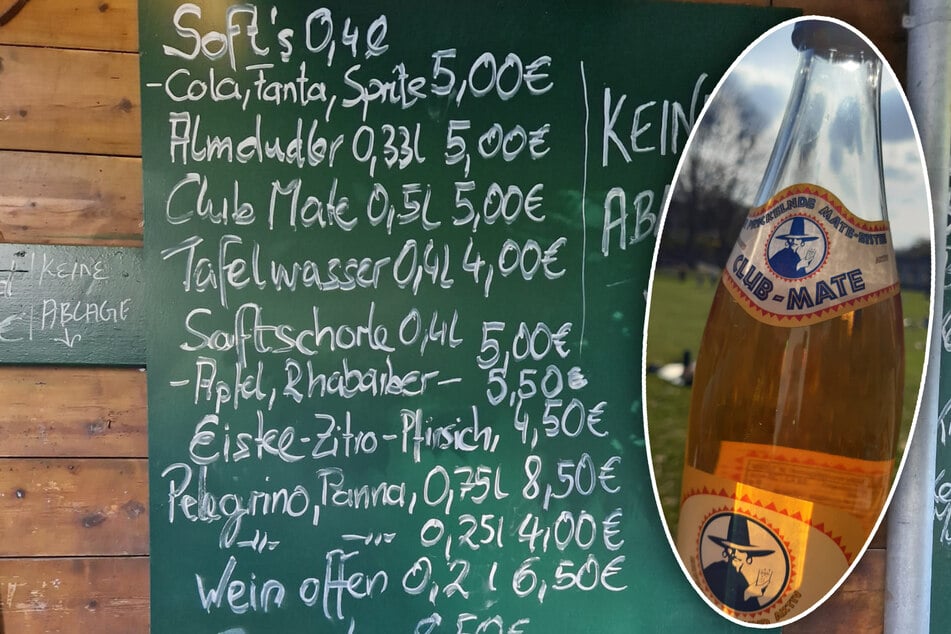 Soft's 0,4l
-Cola, Fanta, Sprite 5,00€
Almdudler 0,33l 5,00€
Club Mate 0,5l 5,00€
Tafelwasser 0,4l 4,00€
Saftschorle 0,4l 5,00€
-Apfel, Rhabarber- 5,50€
Eistee-Zitro-Pfirsich, 4,50€
Pelegrino, Panna, 0,75l 8,50€
-"- -"- 0,25l 4,00€
Wein offen 0,2l 6,50€
8,50€
KEINE
ABLAGE
MATE-
CLUB-MATE